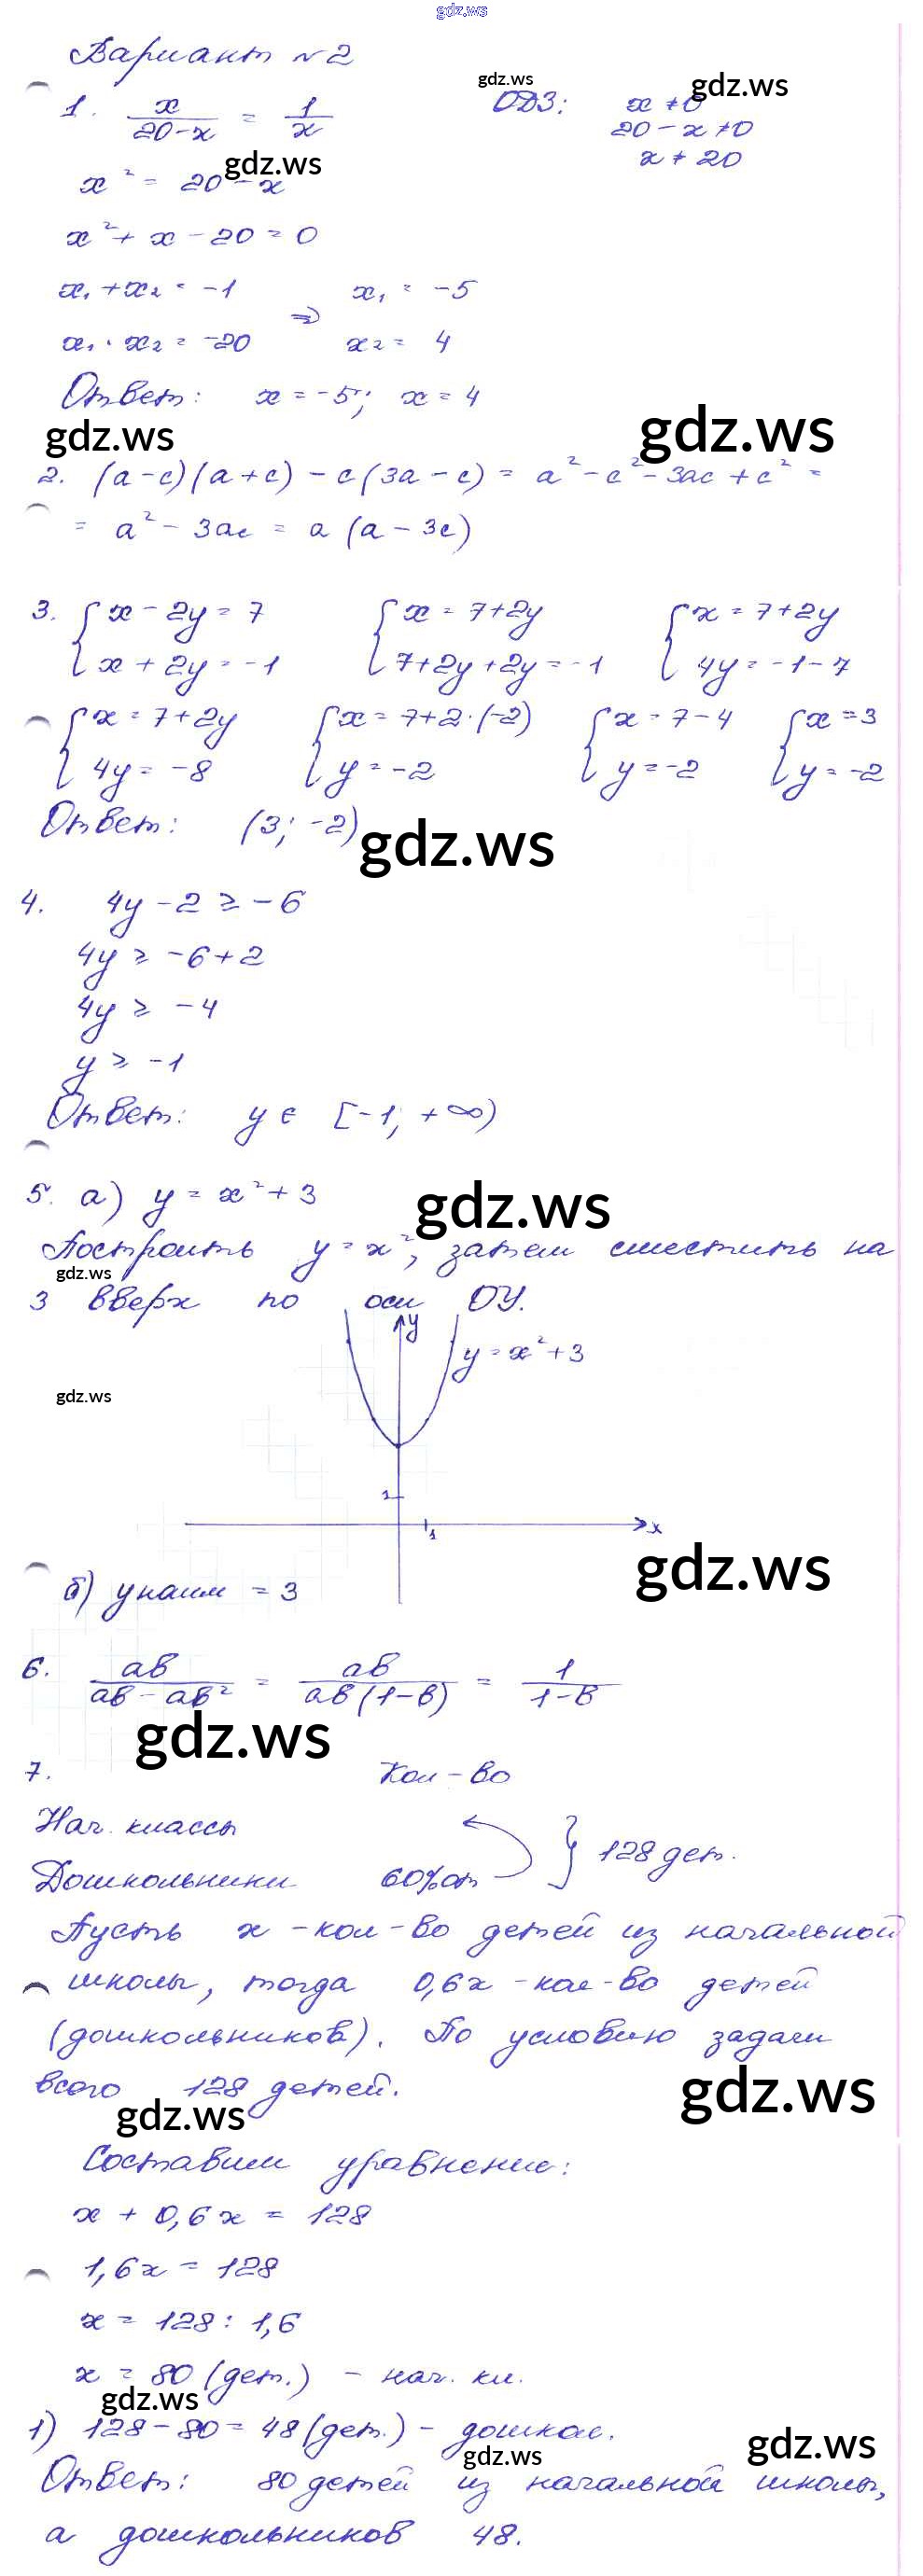 gdz.ws
Вариант №2
1. x/(20-x) = 1/x ОДЗ: x ≠ 0
20 - x ≠ 0
x ≠ 20
gdz.ws gdz.ws
x² = 20 - x gdz.ws
x² + x - 20 = 0
x₁ + x₂ = -1 ⇒ x₁ = -5
x₁ · x₂ = -20 x₂ = 4
Ответ: x = -5; x = 4
gdz.ws gdz.ws
2. (a-c)(a+c) - c(3a-c) = a² - c² - 3ac + c² =
= a² - 3ac = a(a - 3c)
3. {x - 2y = 7 {x = 7+2y {x = 7+2y
{x + 2y = -1 {7+2y+2y = -1 {4y = -1-7
{x = 7+2y {x = 7+2·(-2) {x = 7-4 {x = 3
{4y = -8 {y = -2 {y = -2 {y = -2
Ответ: (3; -2)
gdz.ws
4. 4y - 2 ≥ -6
4y ≥ -6+2
4y ≥ -4
y ≥ -1
Ответ: y ∈ [-1; +∞)
5. а) y = x² + 3 gdz.ws
Построить y = x², затем сместить на
gdz.ws
3 вверх по оси ОУ.
y
y = x² + 3
gdz.ws
1
1 x
gdz.ws
б) y наим = 3
6. ab/(ab - ab²) = ab/(ab(1-b)) = 1/(1-b)
gdz.ws
7. Кол-во
Нач. классы
} 128 дет.
Дошкольники 60% от
Пусть x - кол-во детей из начальной
школы, тогда 0,6x - кол-во детей
(дошкольников). По условию задачи
всего 128 детей.
gdz.ws gdz.ws
Составим уравнение:
x + 0,6x = 128
1,6x = 128
x = 128 : 1,6
x = 80 (дет.) - нач. кл.
gdz.ws
1) 128 - 80 = 48 (дет.) - дошкол.
gdz.ws gdz.ws
Ответ: 80 детей из начальной школы,
а дошкольников 48.